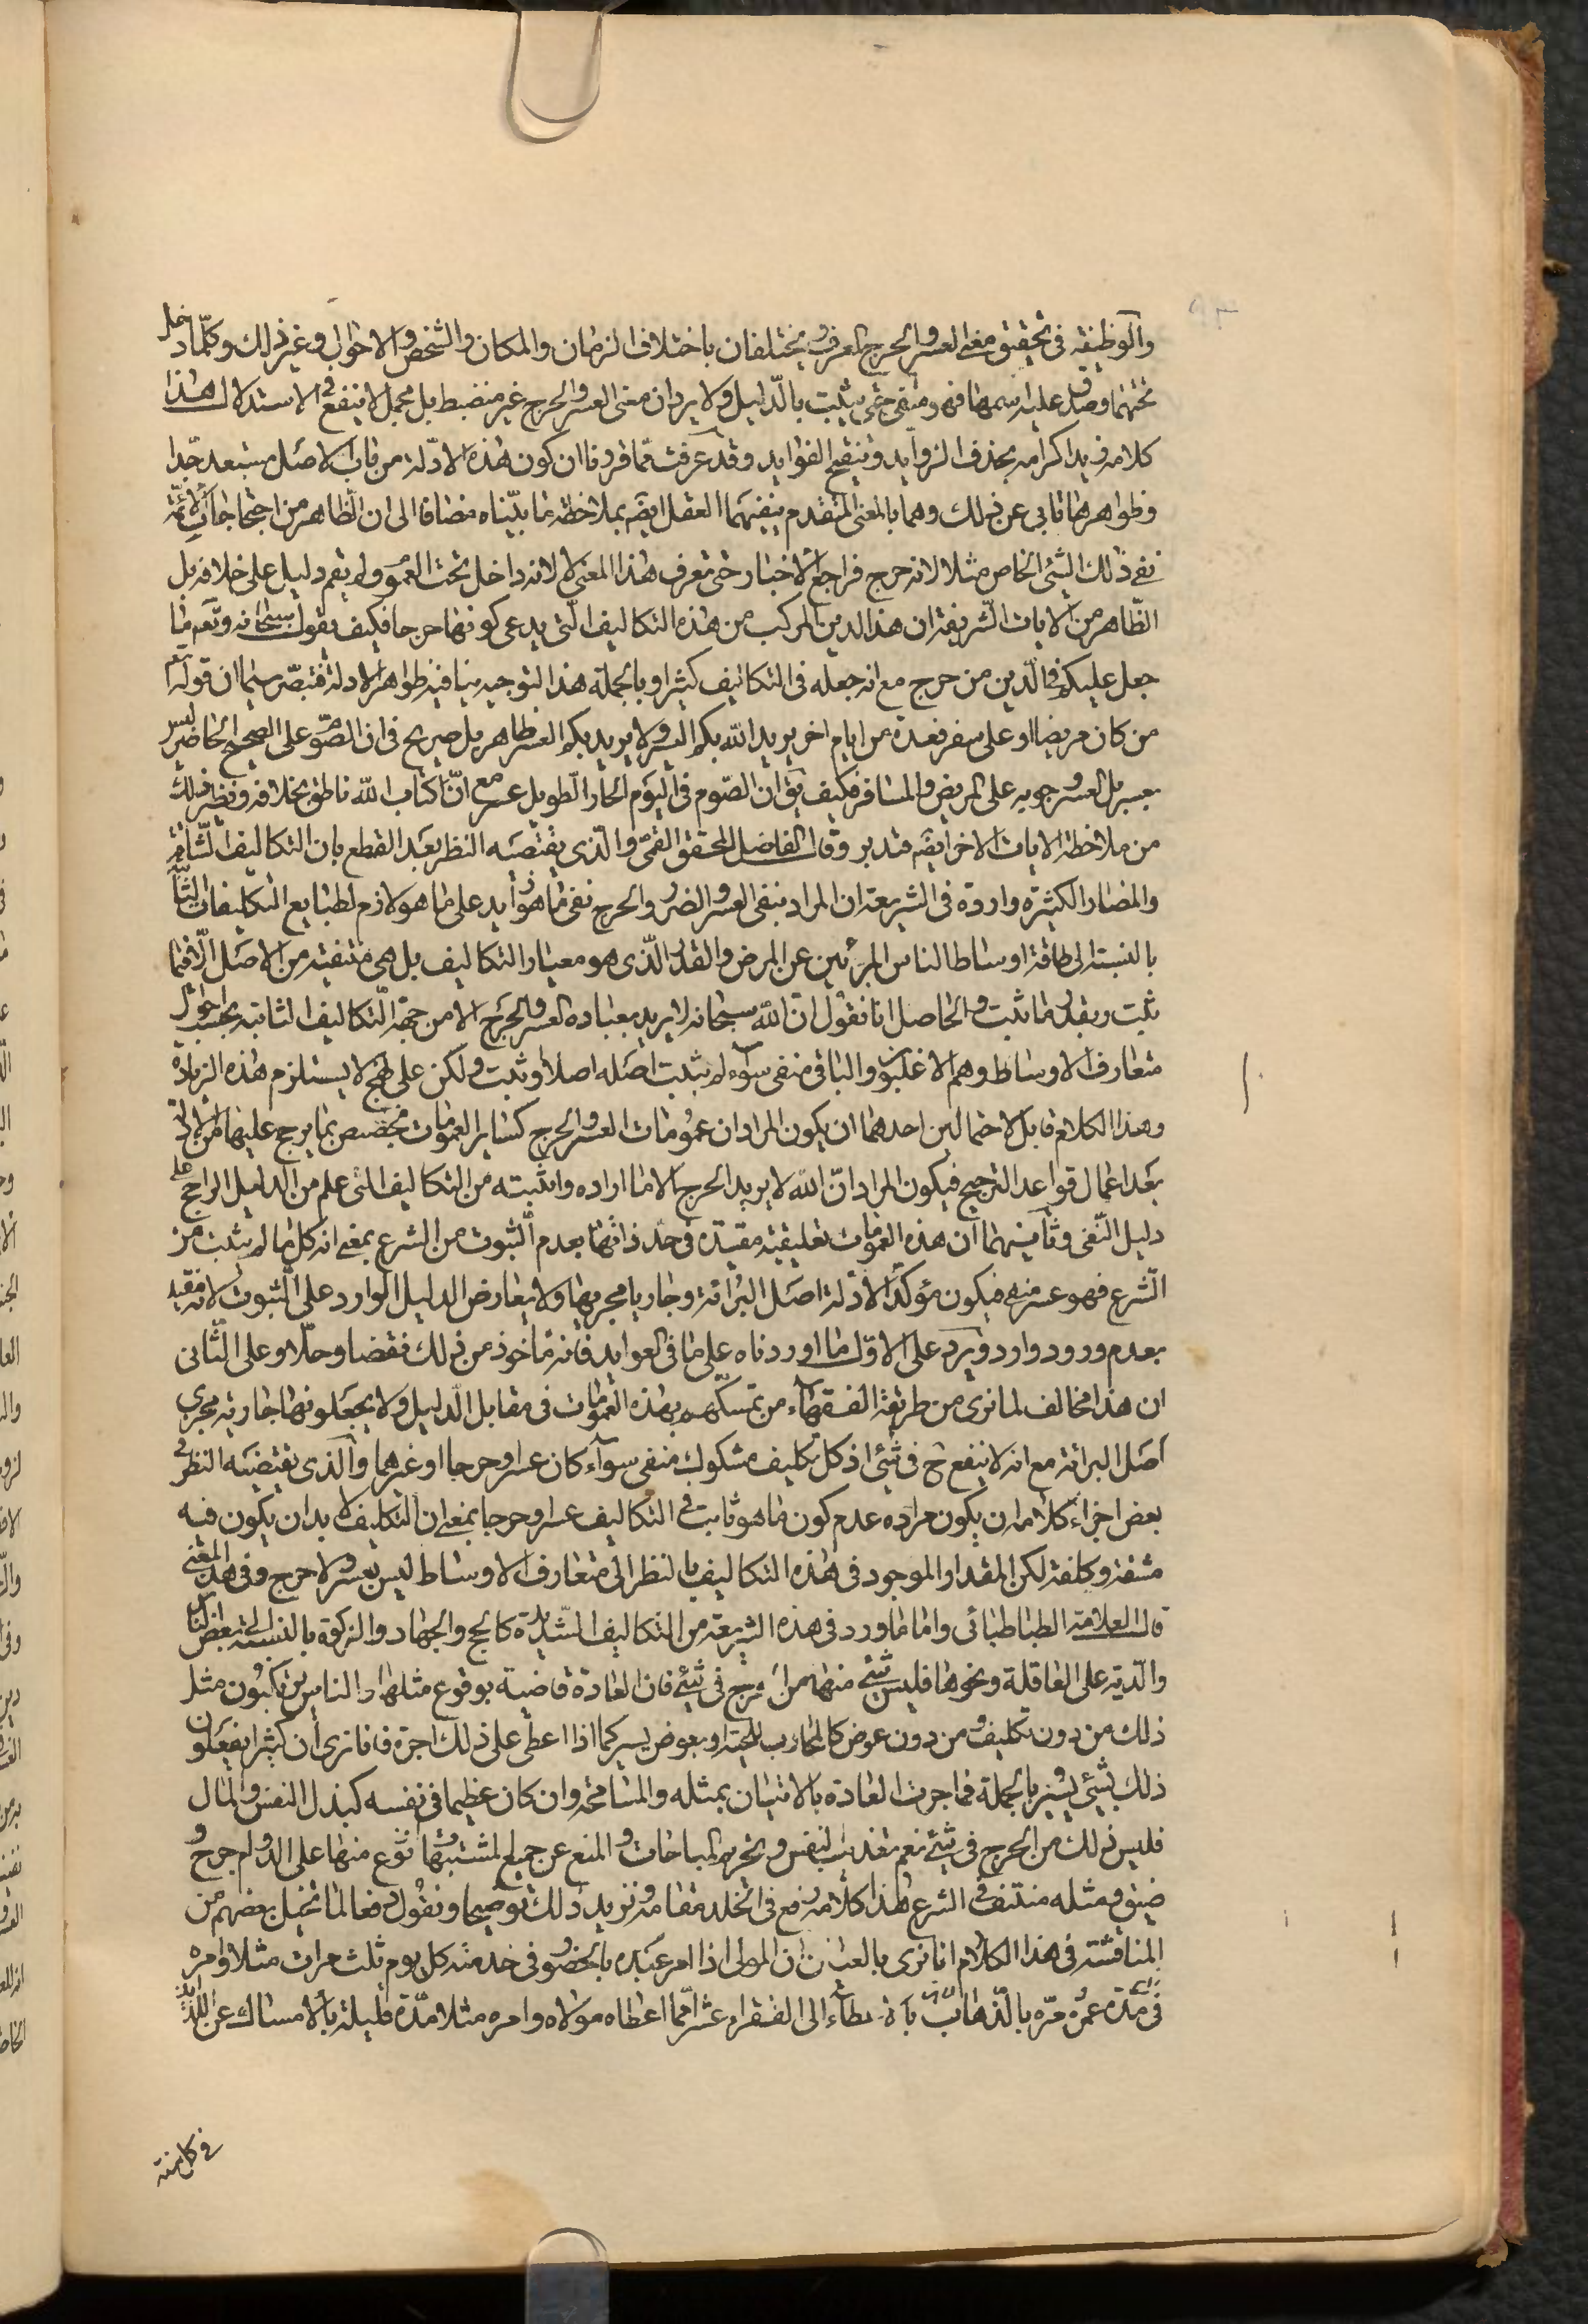 والوظيفة في تحقيق معنى العسر والحرج العرف ويختلفان باختلاف الزمان والمكان والشخص والاحوال وغير ذلك وكلما دخل
تحتهما وصدق عليه اسمهما فهو منفى حتى يثبت بالدليل ولا يرد ان معنى العسر والحرج غير منضبط بل مجمل لا ينفع في الاستدلال هذا
كلامه زيد اكرامه بحذف الزوايد وتنقيح الفوايد وقد عرفت مما قررنا ان كون هذه الادلة من باب الاصل مستبعد جدا
وظواهرها تابى عن ذلك وهما بالمعنى المتقدم ينفيهما العقل ايضَ بملاحظة ما بيناه مضافا الى ان الظاهر من احتجاجات الائمة
نفى ذلك الشئ الخاص مثلا لانه حرج فراجع الاخبار حتى تعرف هذا المعنى لا لانه داخل تحت العموم ولم يقم دليل على خلافه بل
الظاهر من الايات الشريفة ان هذا الدين المركب من هذه التكاليف التى يدعى كونها حرجا فكيف يقول سبحانه وتعم ما
جعل عليكم في الدين من حرج مع انه جعله في التكاليف كثيرا وبالجملة هذا التوجيه ينافيه ظواهر الادلة فتبصر سيما ان قوله تعم
من كان مريضا او على سفر فعدة من ايام اخر يريد الله بكم اليسر ولا يريد بكم العسر ظاهر بل صريح في ان الصوم على الصحيح الحاضر ليس
بعسر بل العسر وجوبه على المريض والمسافر فكيف يق ان الصوم في اليوم الحار الطويل عسر مع ان كتاب الله ناطق بخلافه ونظير ذلك
من ملاحظة الايات الاخر ايضَ فتدبر وقال الفاضل المحقق القمى والذى يقتضيه النظر بعد القطع بان التكاليف الشاقة
والمضار الكثيرة واردة في الشريعة ان المراد بنفى العسر والضرر والحرج نفى ما هو زايد على ما هو لازم لطبايع التكليفات الثابتة
بالنسبة الى طاقة اوساط الناس المبرئين عن المرض والقدر الذى هو معيار التكاليف بل هى منتفية من الاصل الا فيما
ثبت وبقدر ما ثبت والحاصل انا نقول ان الله سبحانه لا يريد بعباده العسر والحرج الا من جهة التكاليف الثابتة بحسب احوال
متعارف الاوساط وهم الاغلبون والباقى منفى سواء لم يثبت اصله اصلا او ثبت ولكن على نهج لا يستلزم هذه الزيادة
وهذا الكلام قابل لاحتمالين احدهما ان يكون المراد ان عمومات العسر والحرج كساير العمومات تخصص بما يرجح عليها من الادلة
بعد اعمال قواعد الترجيح فيكون المراد ان الله لا يريد الحرج الا ما اراده واثبته من التكاليف التى علم من الدليل الراجح على
دليل النفى وثانيهما ان هذه العمومات تعليقية مقيدة في حد ذاتها بعدم الثبوت من الشرع بمعنى انه كل ما لم يثبت من
الشرع فهو عسر منفى فيكون مؤكدا لادلة اصل البرائة وجاريا مجريها ولا يعارض الدليل الوارد على الثبوت لانه مقيد
بعدم ورود وارد ويرد على الاول ما اوردناه على ما في العوايد فانه مأخوذ من ذلك نقضا وحلا وعلى الثانى
ان هذا مخالف لما نرى من طريقة الفقهاء من تمسكهم بهذه العمومات في مقابل الدليل ولا يجعلونها جارية مجرى
اصل البرائة مع انه لا ينفع ح في شئ اذ كل تكليف مشكوك منفى سواء كان عسرا وحرجا او غيرهما والذى يقتضيه النظر في
بعض اجزاء كلامه ان يكون مراده عدم كون ما هو ثابت في التكاليف عسرا وحرجا بمعنى ان التكليف لا بد ان يكون فيه
مشقة وكلفة لكن المقدار الموجود في هذه التكاليف بالنظر الى متعارف الاوساط ليس بعسر ولا حرج وفى هذا المعنى
قال العلامة الطباطبائى واما ما ورد في هذه الشريعة من التكاليف الشديدة كالحج والجهاد والزكوة بالنسبة الى بعض الناس
والدية على العاقلة ونحوها فليس شئ منها من الحرج في شئ فان العادة قاضية بوقوع مثلها والناس يرتكبون مثل
ذلك من دون تكليف ومن دون عوض كالمحارب للحمية او بعوض يسير كما اذا اعطى على ذلك اجرة فانا نرى ان كثيرا يفعلون
ذلك بشئ يسير وبالجملة فما جرت العادة بالاتيان بمثله والمسامحة وان كان عظيما في نفسه كبذل النفس والمال
فليس ذلك من الحرج في شئ نعم تعذيب النفس وتحريم المباحات والمنع عن جميع المشتهيات او نوع منها على الدوام حرج و
ضيق ومثله منتف في الشرع هذا كلامه رفع في الخلد مقامه ونزيد ذلك توضيحا ونقول دفعا لما تخيل بعضهم من
المناقشة في هذا الكلام انا نرى بالعيان ان المولى اذا امر عبده بالحضور في خدمته كل يوم ثلث مرات مثلا وامره
في مدة عمره مرة بالذهاب باعطاء الى الفقراء عشر مما اعطاه مولاه وامره مثلا مدة قليلة بالامساك عن
في كل سنة